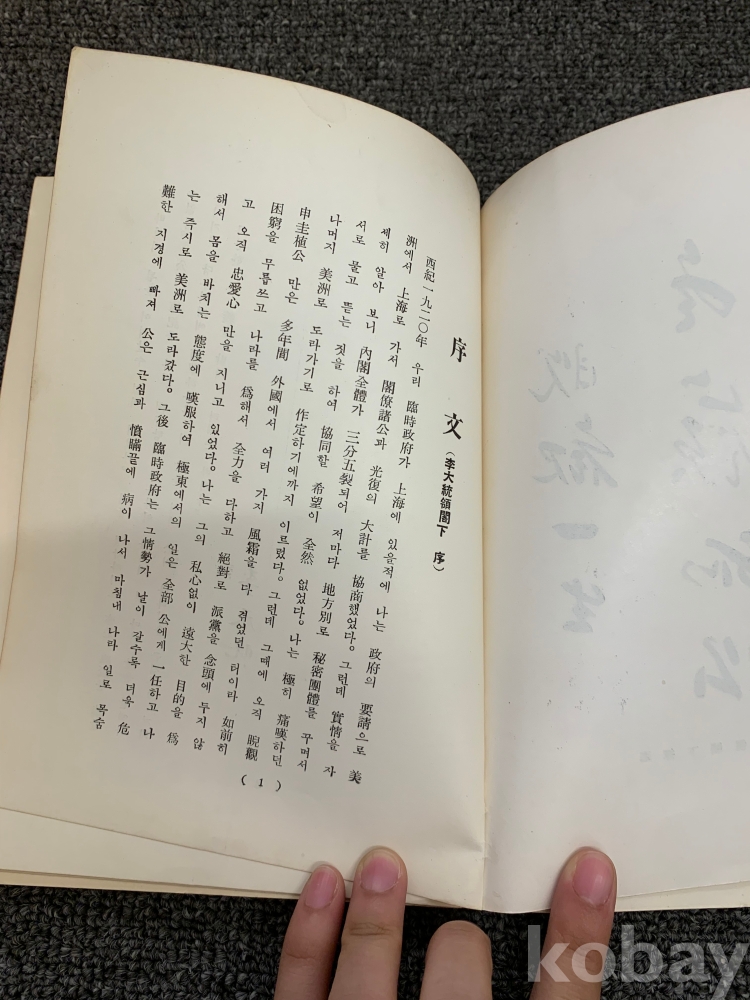 序文 (李大統領閣下 序)
西紀一九二〇年 우리 臨時政府가 上海에 있을적에 나는 政府의 要請으로 美
洲에서 上海로 가서 閣僚諸公과 光復의 大計를 協商했었다。그런데 實情을 자
세히 알아 보니 內閣全體가 三分五裂되어 저마다 地方別로 秘密團體를 꾸며서
서로 물고 뜯는 짓을 하여 協同할 希望이 全然 없었다。나는 極히 痛嘆하던
나머지 美洲로 도라가기로 作定하기에까지 이르렀다。그런데 그때에 오직 睨觀
申圭植公 만은 多年間 外國에서 여러 가지 風霜을 다 겪었던 터이라 如前히
困窮을 무릅쓰고 나라를 爲해서 全力을 다하고 絕對로 派黨을 念頭에 두지 않
고 오직 忠愛心 만을 지니고 있었다。나는 그의 私心없이 遠大한 目的을 爲
해서 몸을 바치는 態度에 嘆服하여 極東에서의 일은 全部 公에게 一任하고 나
는 즉시로 美洲로 도라갔다。그後 臨時政府는 그 情勢가 날이 갈수록 더욱 危
難한 지경에 빠져 公은 근심과 憤瞞끝에 病이 나서 마침내 나라 일로 목숨
( 1 )
kobay